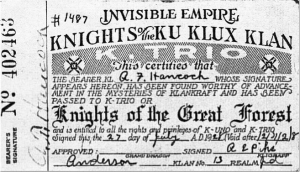 #1487
INVISIBLE EMPIRE,
KNIGHTS OF THE KU KLUX KLAN
K-TRIO
This certifies that
THE BEARER, KL A. F. Hancock WHOSE SIGNATURE
APPEARS HEREON, HAS BEEN FOUND WORTHY OF ADVANCE-
MENT IN THE MYSTERIES OF KLANKRAFT AND HAS BEEN
PASSED TO K-TRIO OR
Knights of the Great Forest
and is entitled to all the rights and privileges of K-UNO and K-TRIO
Signed this the 27 day of July A.D. 1928
APPROVED: Signed
Anderson KLAN No. 13 REALM
No 402463
BEARER'S
SIGNATURE